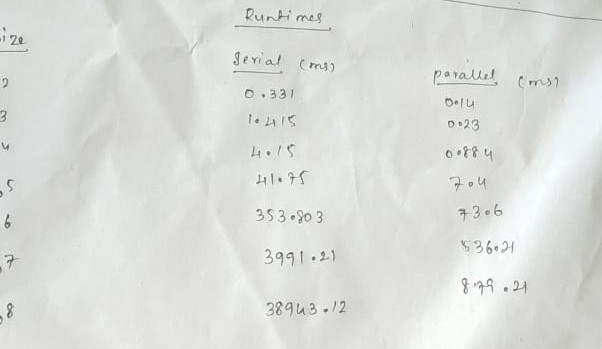 Runtimes
ize
Serial (ms) parallel (ms)
2 0.331 0.14
3 1.415 0.23
4 4.15 0.884
5 41.75 7.4
6 353.803 73.6
7 3991.21 536.21
8 38943.12 879.21